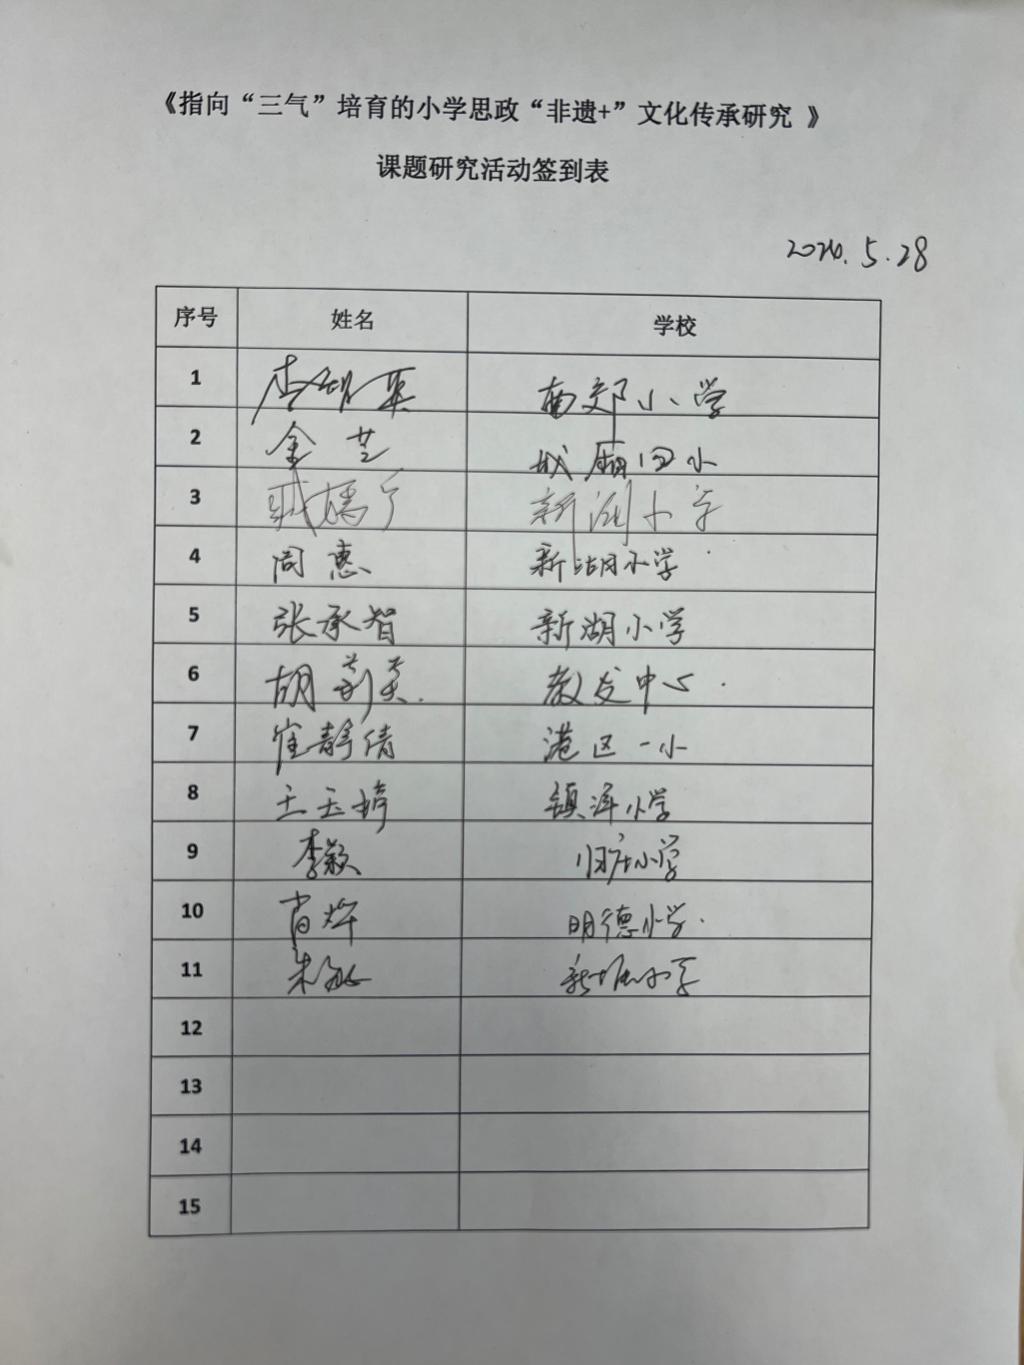 《指向“三气”培育的小学思政“非遗+”文化传承研究 》
课题研究活动签到表
2024.5.28
序号 姓名 学校
1 南郊小学
2 金芝 城厢四小
3 新湖小学
4 周惠 新湖小学
5 张承智 新湖小学
6 胡莉英 教发中心
7 崔静倩 港区一小
8 王玉婷 镇洋小学
9 李颖 归庄小学
10 肖烨 明德小学
11 朱敏 新塘小学
12
13
14
15